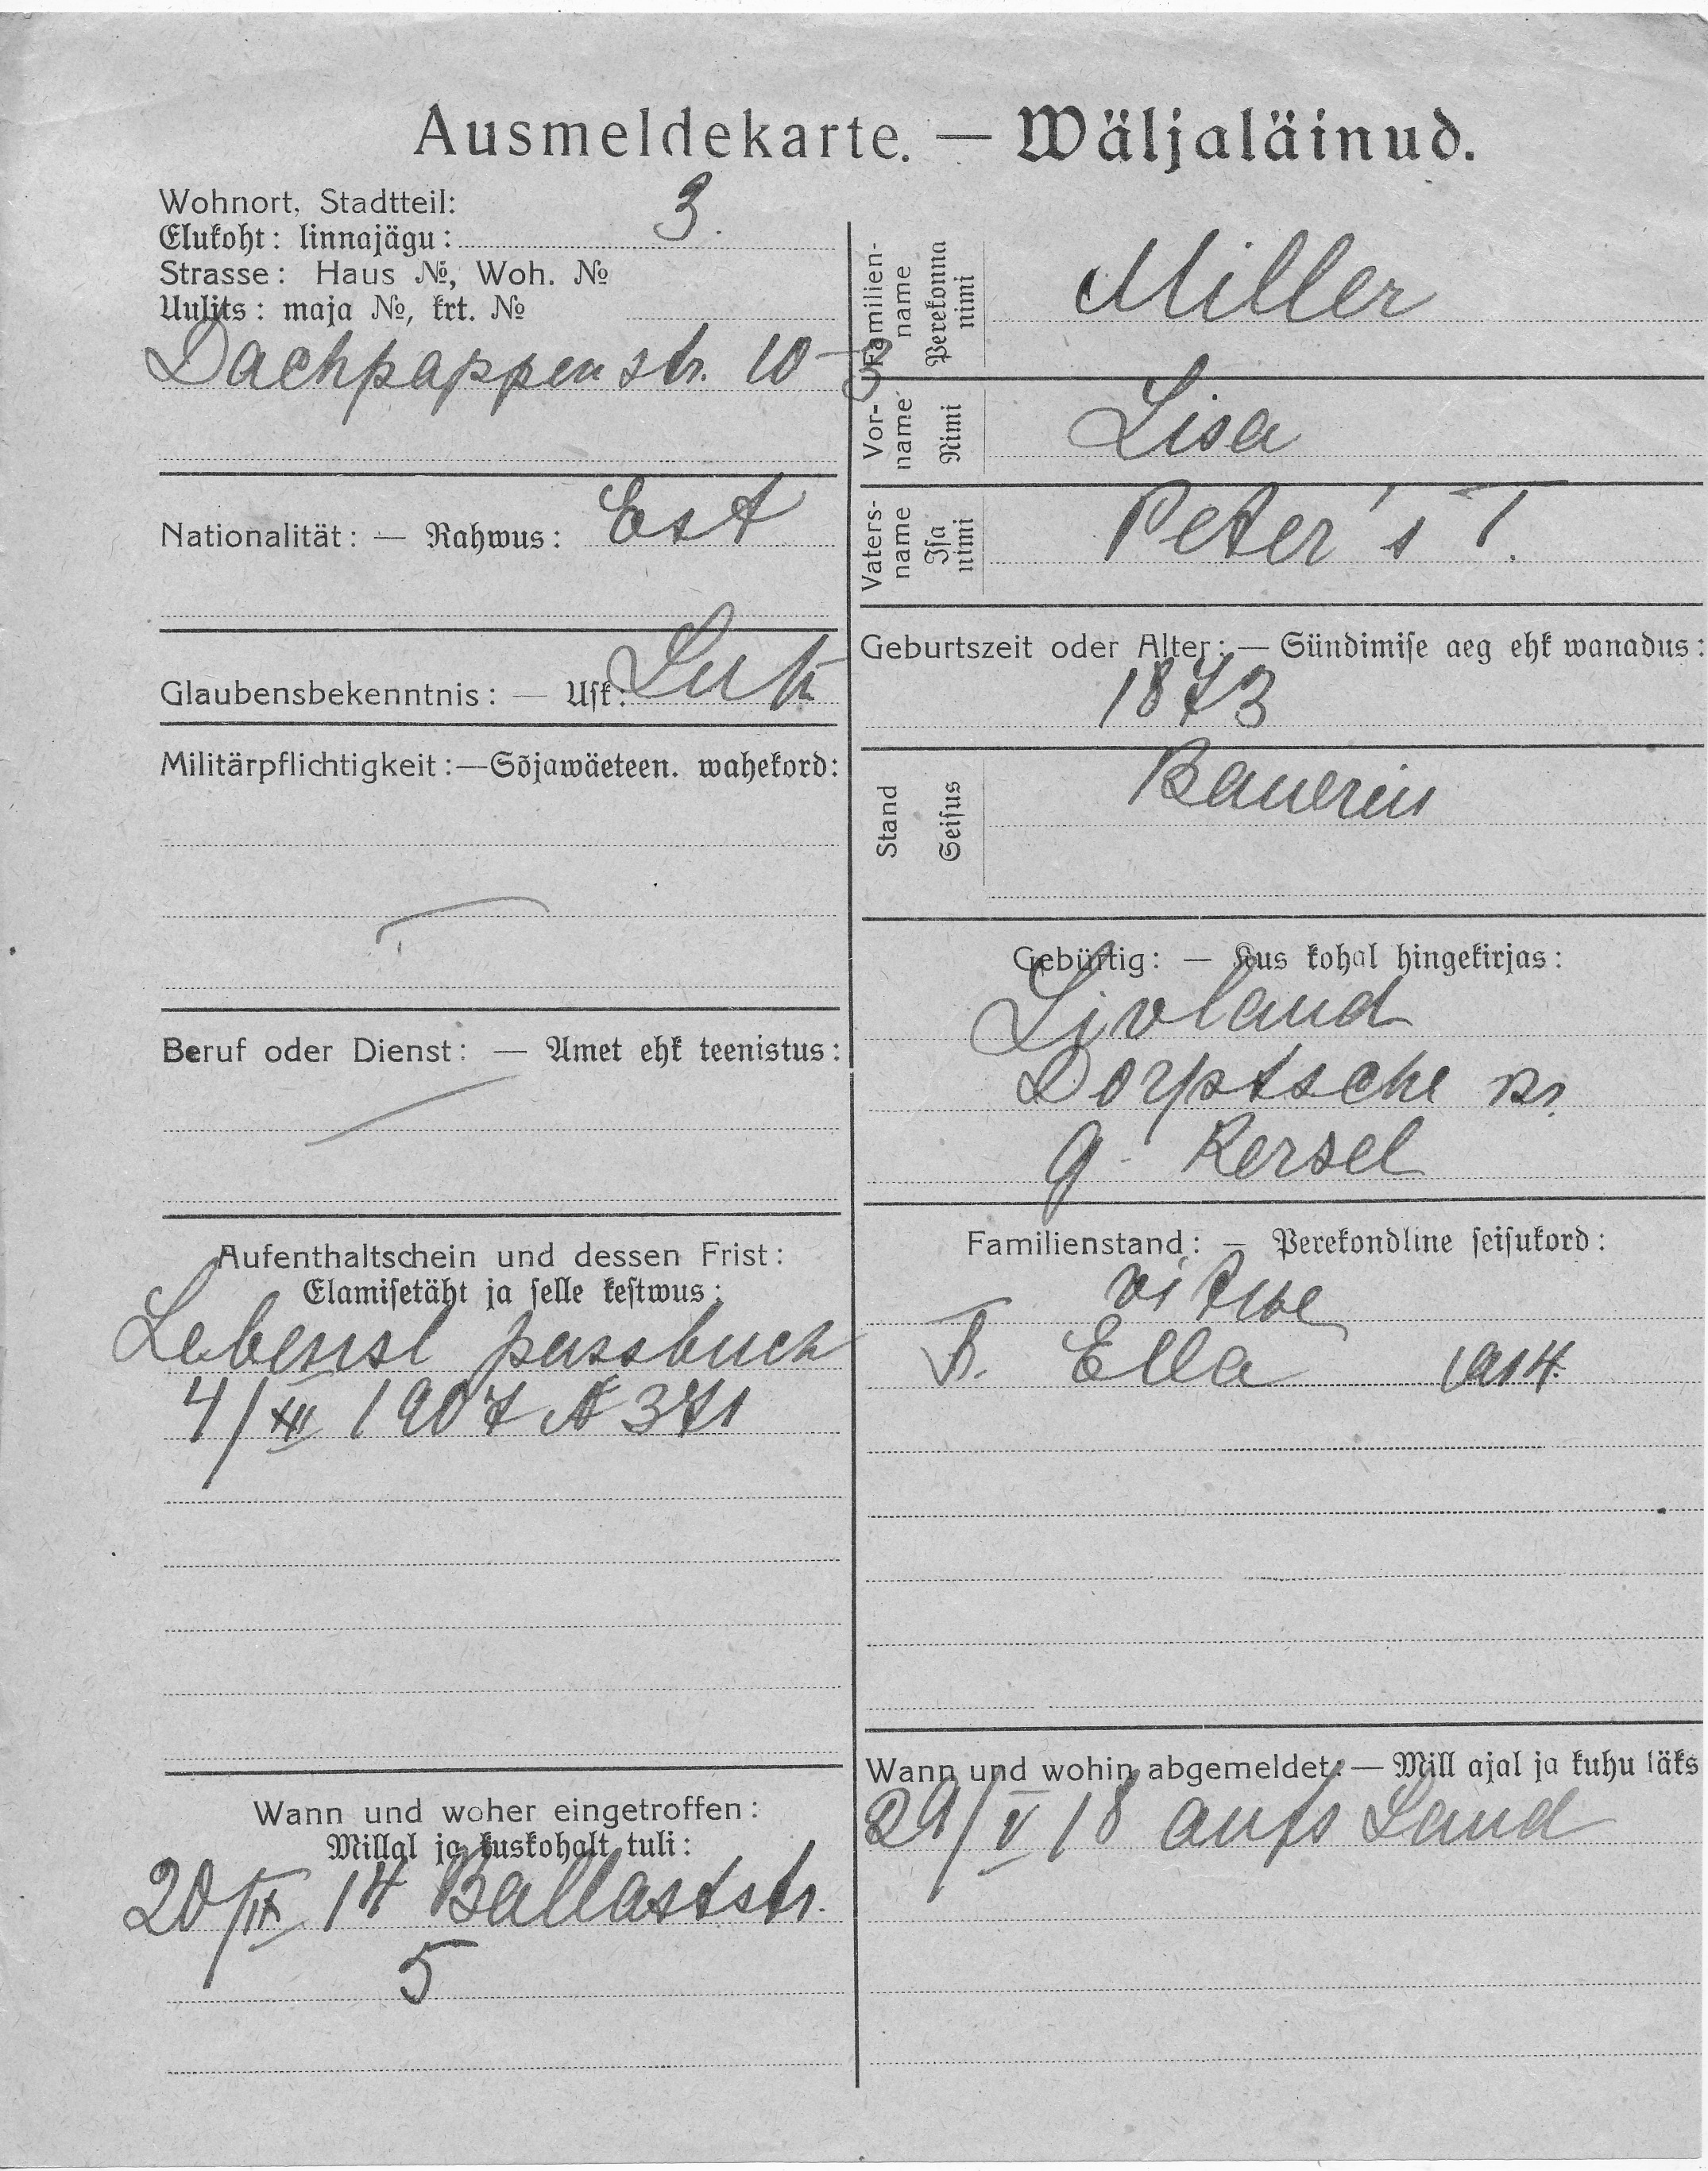 Ausmeldekarte. — Wäljaläinud.
Wohnort, Stadtteil:
Elukoht: linnajägu: 3.
Strasse: Haus №, Woh. №
Uulits: maja №, krt. №
Dachpappenstr. 10-3
Nationalität: — Rahwus: Est
Glaubensbekenntnis: — Usk: Luth
Militärpflichtigkeit:—Sõjawäeteen. wahekord:
Beruf oder Dienst: — Amet ehk teenistus:
Aufenthaltschein und dessen Frist:
Elamisetäht ja selle kestwus:
Lebensl passbuch
4/XII 1907 № 371
Wann und woher eingetroffen:
Millal ja kuskohalt tuli:
20/IX 14 Ballaststr.
5
Familien-
name
Perekonna
nimi
Miller
Vor-
name
Nimi
Lisa
Vaters-
name
Isa
nimi
Peter's T.
Geburtszeit oder Alter: — Sündimise aeg ehk wanadus:
1873
Stand
Seisus
Bauerin
Gebürtig: — Kus kohal hingekirjas:
Livland
Dorptsche Kr.
g. Kersel
Familienstand: — Perekondline seisukord:
vitwe
T. Ella 1914.
Wann und wohin abgemeldet: — Mill ajal ja kuhu läks
29/V 18 aufs Land